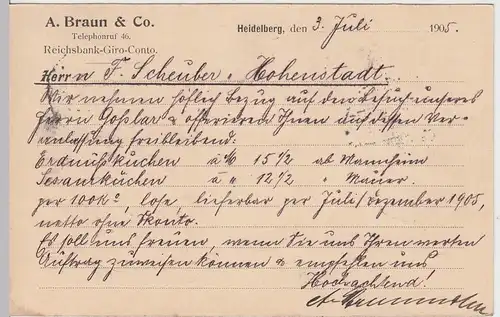 A. Braun & Co.
Telephonruf 46.
Reichsbank-Giro-Conto.
Heidelberg, den 3. Juli 1905.
Herrn F. Scheuber, Hohenstadt.
Wir nehmen höflich Bezug auf den Besuch unseres
Herrn Goßlar & offeriren Ihnen auf dessen Ver-
anlassung freibleibend:
Erdnußkuchen à M 15 1/2 ab Mannheim
Sesamkuchen à " 12 1/2 " Mauer.
per 100 Ko, lose, lieferbar per Juli/Dezember 1905,
netto ohne Skonto.
Es soll uns freuen, wenn Sie uns Ihren werten
Auftrag zuweisen können & empfehlen uns
Hochachtend!